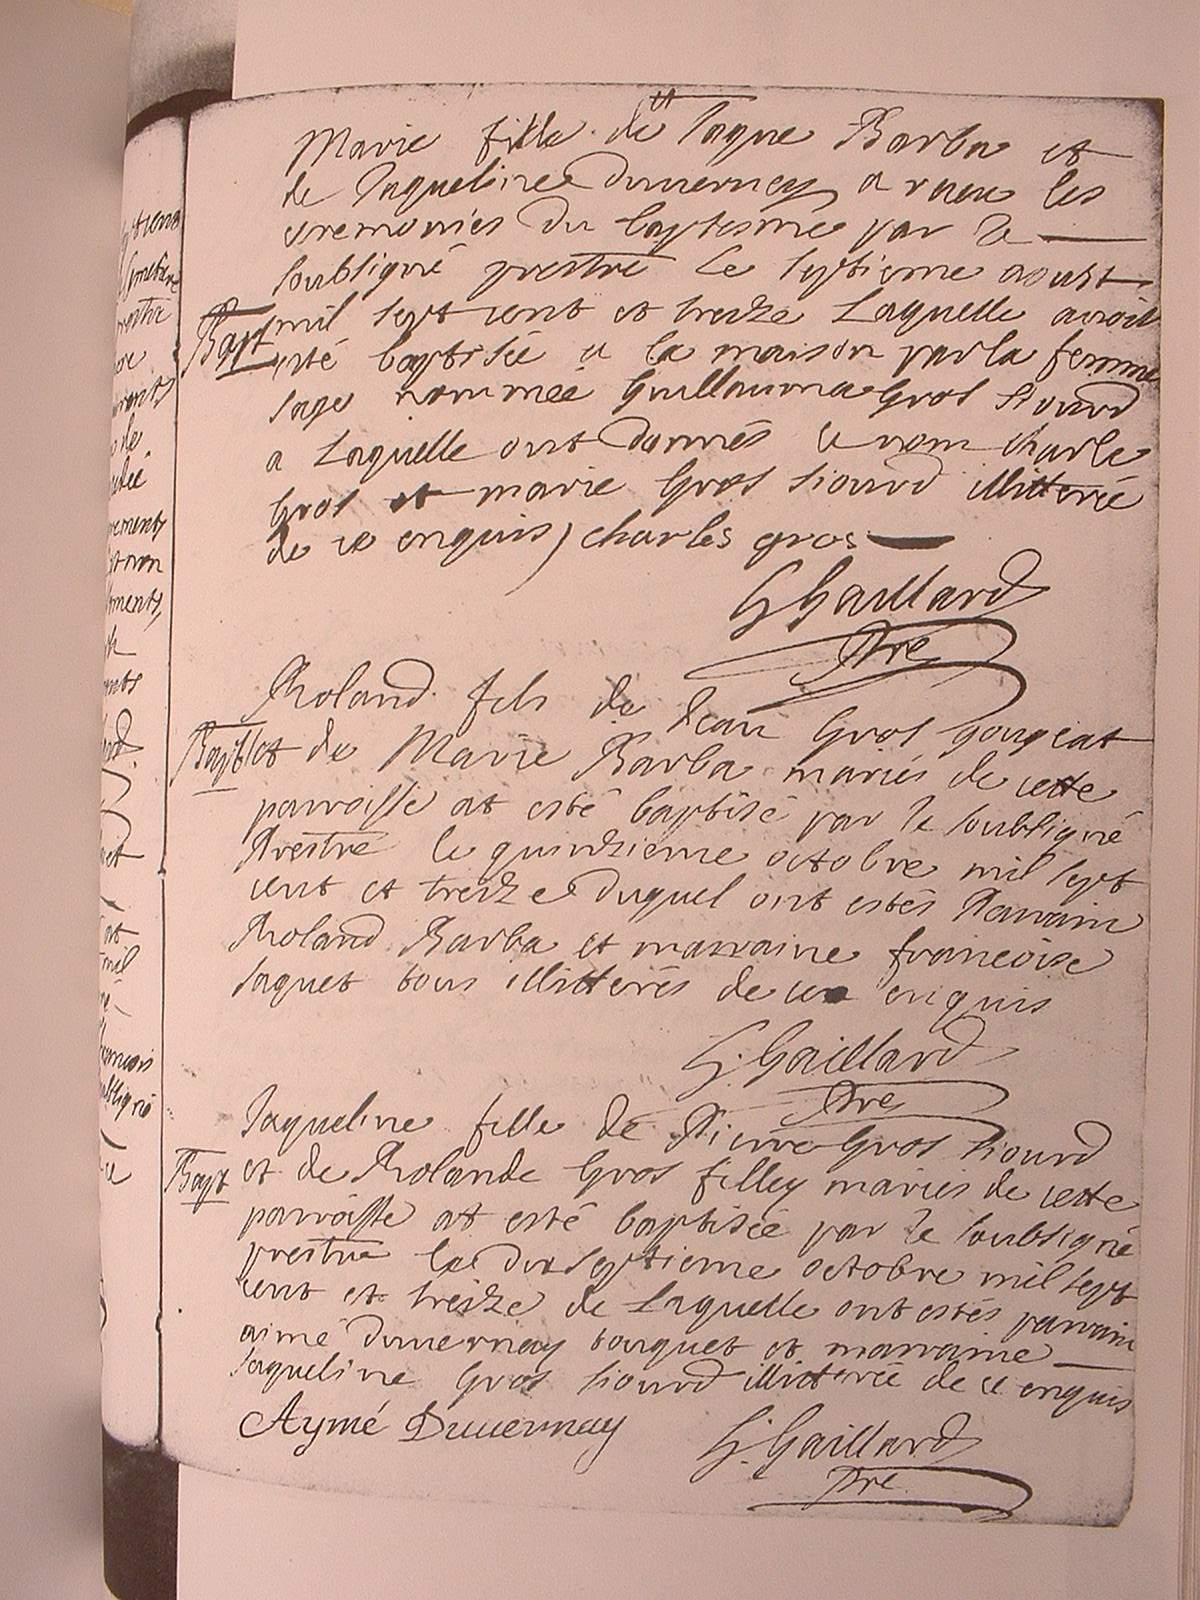 Marie fille de Jaque Barba et
de Jaqueline Duuerney a receu les
ceremonies du baptesme par le
soubsigné prestre le septieme aoust
Bapt mil sept cent et treize Laquelle avoit
esté baptisée a la maison par la femme
sage nommée Guillauma Gros Siourd
a Laquelle ont donnés ce nom charle
Gros et marie Gros Siourd illitterée
de ce enquis) charles gros
G Gaillard
Pre
Roland fils de Jean Gros Gougeat
Bapt et de Marie Barba mariés de cette
parroisse at esté baptisé par le soubsigné
Prestre le quindzieme octobre mil sept
cent et treize duquel ont estés Parrain
Roland Barba et marraine francoise
Jaquet tous illitterés de ce enquis
G. Gaillard
Pre
Jaqueline fille de Pierre Gros Siourd
Bapt et de Rolande Gros filley mariés de cette
parroisse at esté baptisée par le soubsigné
prestre le dixseptieme octobre mil sept
cent et treize de Laquelle ont estés parrain
aimé duuernay bouquet et marraine
Jaqueline Gros Siourd illitterée de ce enquis
Aymé Duuernay G. Gaillard
Pre